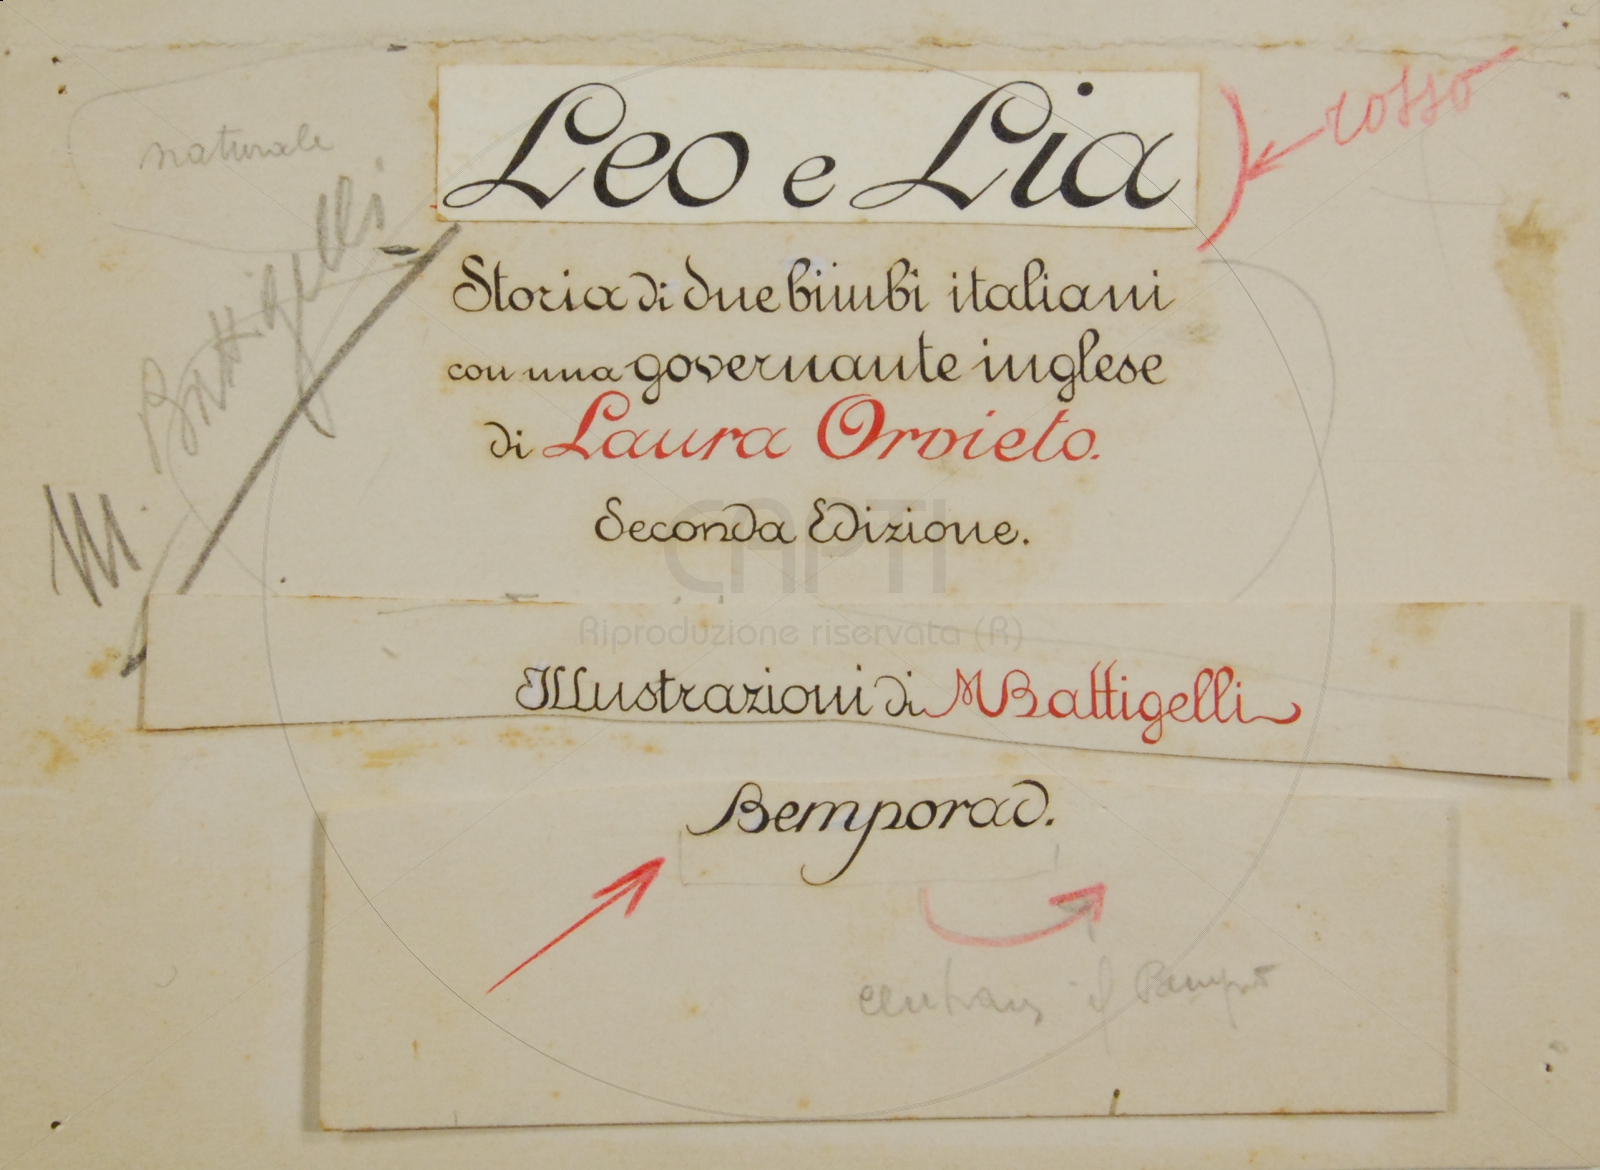 Leo e Lia
rosso
naturale
Storia di due bimbi italiani
con una governante inglese
di Laura Orvieto.
Seconda Edizione.
M. Battigelli
CAPTI
Riproduzione riservata (R)
Illustrazioni di M Battigelli
Bemporad.
il